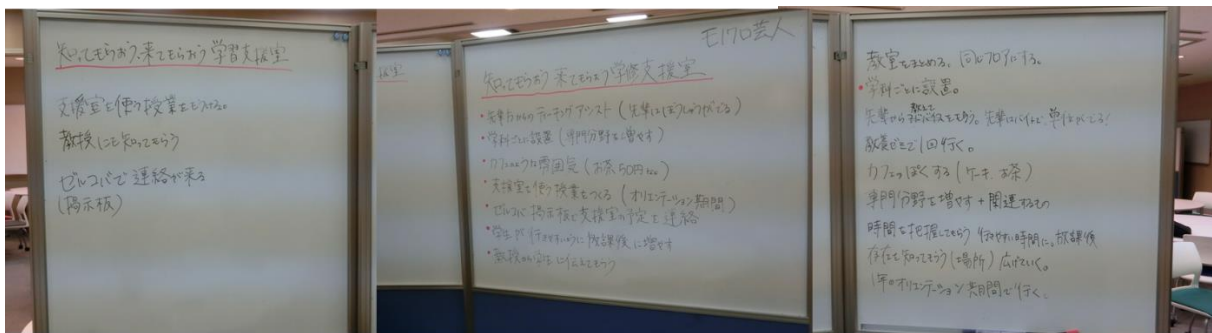 知ってもらおう、来てもらおう 学習支援室
支援室を使う授業をもうける。
教授にも知ってもらう
ゼルコバで連絡が来る
(掲示板)
モノクロ芸人
知ってもらおう 来てもらおう 学修支援室
・先輩方からのティーチングアシスト(先輩にはほうしゅうがでる)
・学科ごとに設置(専門分野を増やす)
・カフェのような雰囲気(お茶50円
・支援室を使う授業をつくる(オリエンテーション期間)
・ゼルコバ 掲示板で支援室の予定を連絡
・学生が行きやすいように放課後に増やす
・教授から学生に伝えてもらう
教室をまとめる。同じフロアにする。
・学科ごとに設置。
先輩から教えてもらう。先輩はバイトで、単位がでる!
教養ゼミで1回行く。
カフェっぽくする(ケーキ、お茶)
専門分野を増やす+関連するもの
時間を把握してもらう 行きやすい時間に。放課後
存在を知ってもらう(場所)広げていく。
1年のオリエンテーション期間で行く。